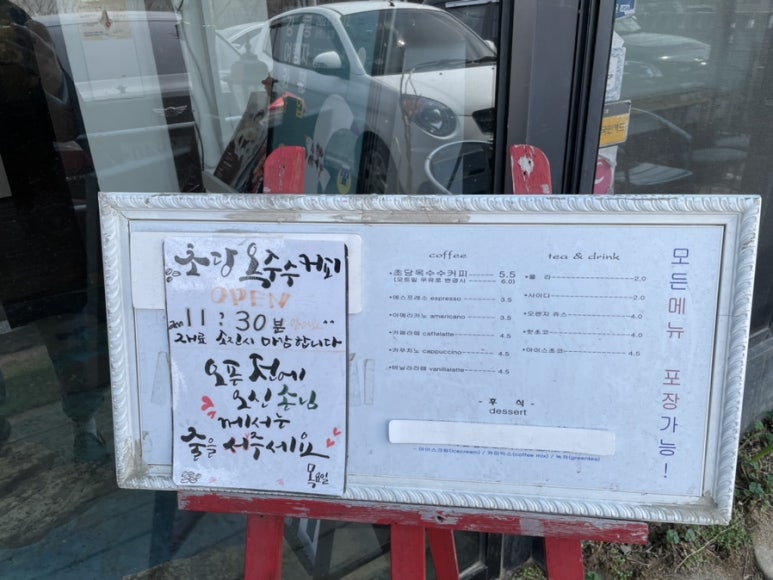 초당옥수수커피
OPEN
11:30분
재료 소진시 마감합니다
오픈전에
오신 손님
께서는
줄을 서주세요
coffee
초당옥수수커피 5.5
(오트밀 우유로 변경시 6.0)
에스프레소 espresso 3.5
아메리카노 americano 3.5
카페라떼 caffelatte 4.5
카푸치노 cappuccino 4.5
바닐라라떼 vanillalatte 4.5
tea & drink
콜 라 2.0
사이다 2.0
오렌지 쥬스 4.0
핫초코 4.0
아이스초코 4.5
- 후 식 -
dessert
- 아이스크림(icecream) / 커피믹스(coffee mix) / 녹차(greentea)
모든메뉴 포장가능!